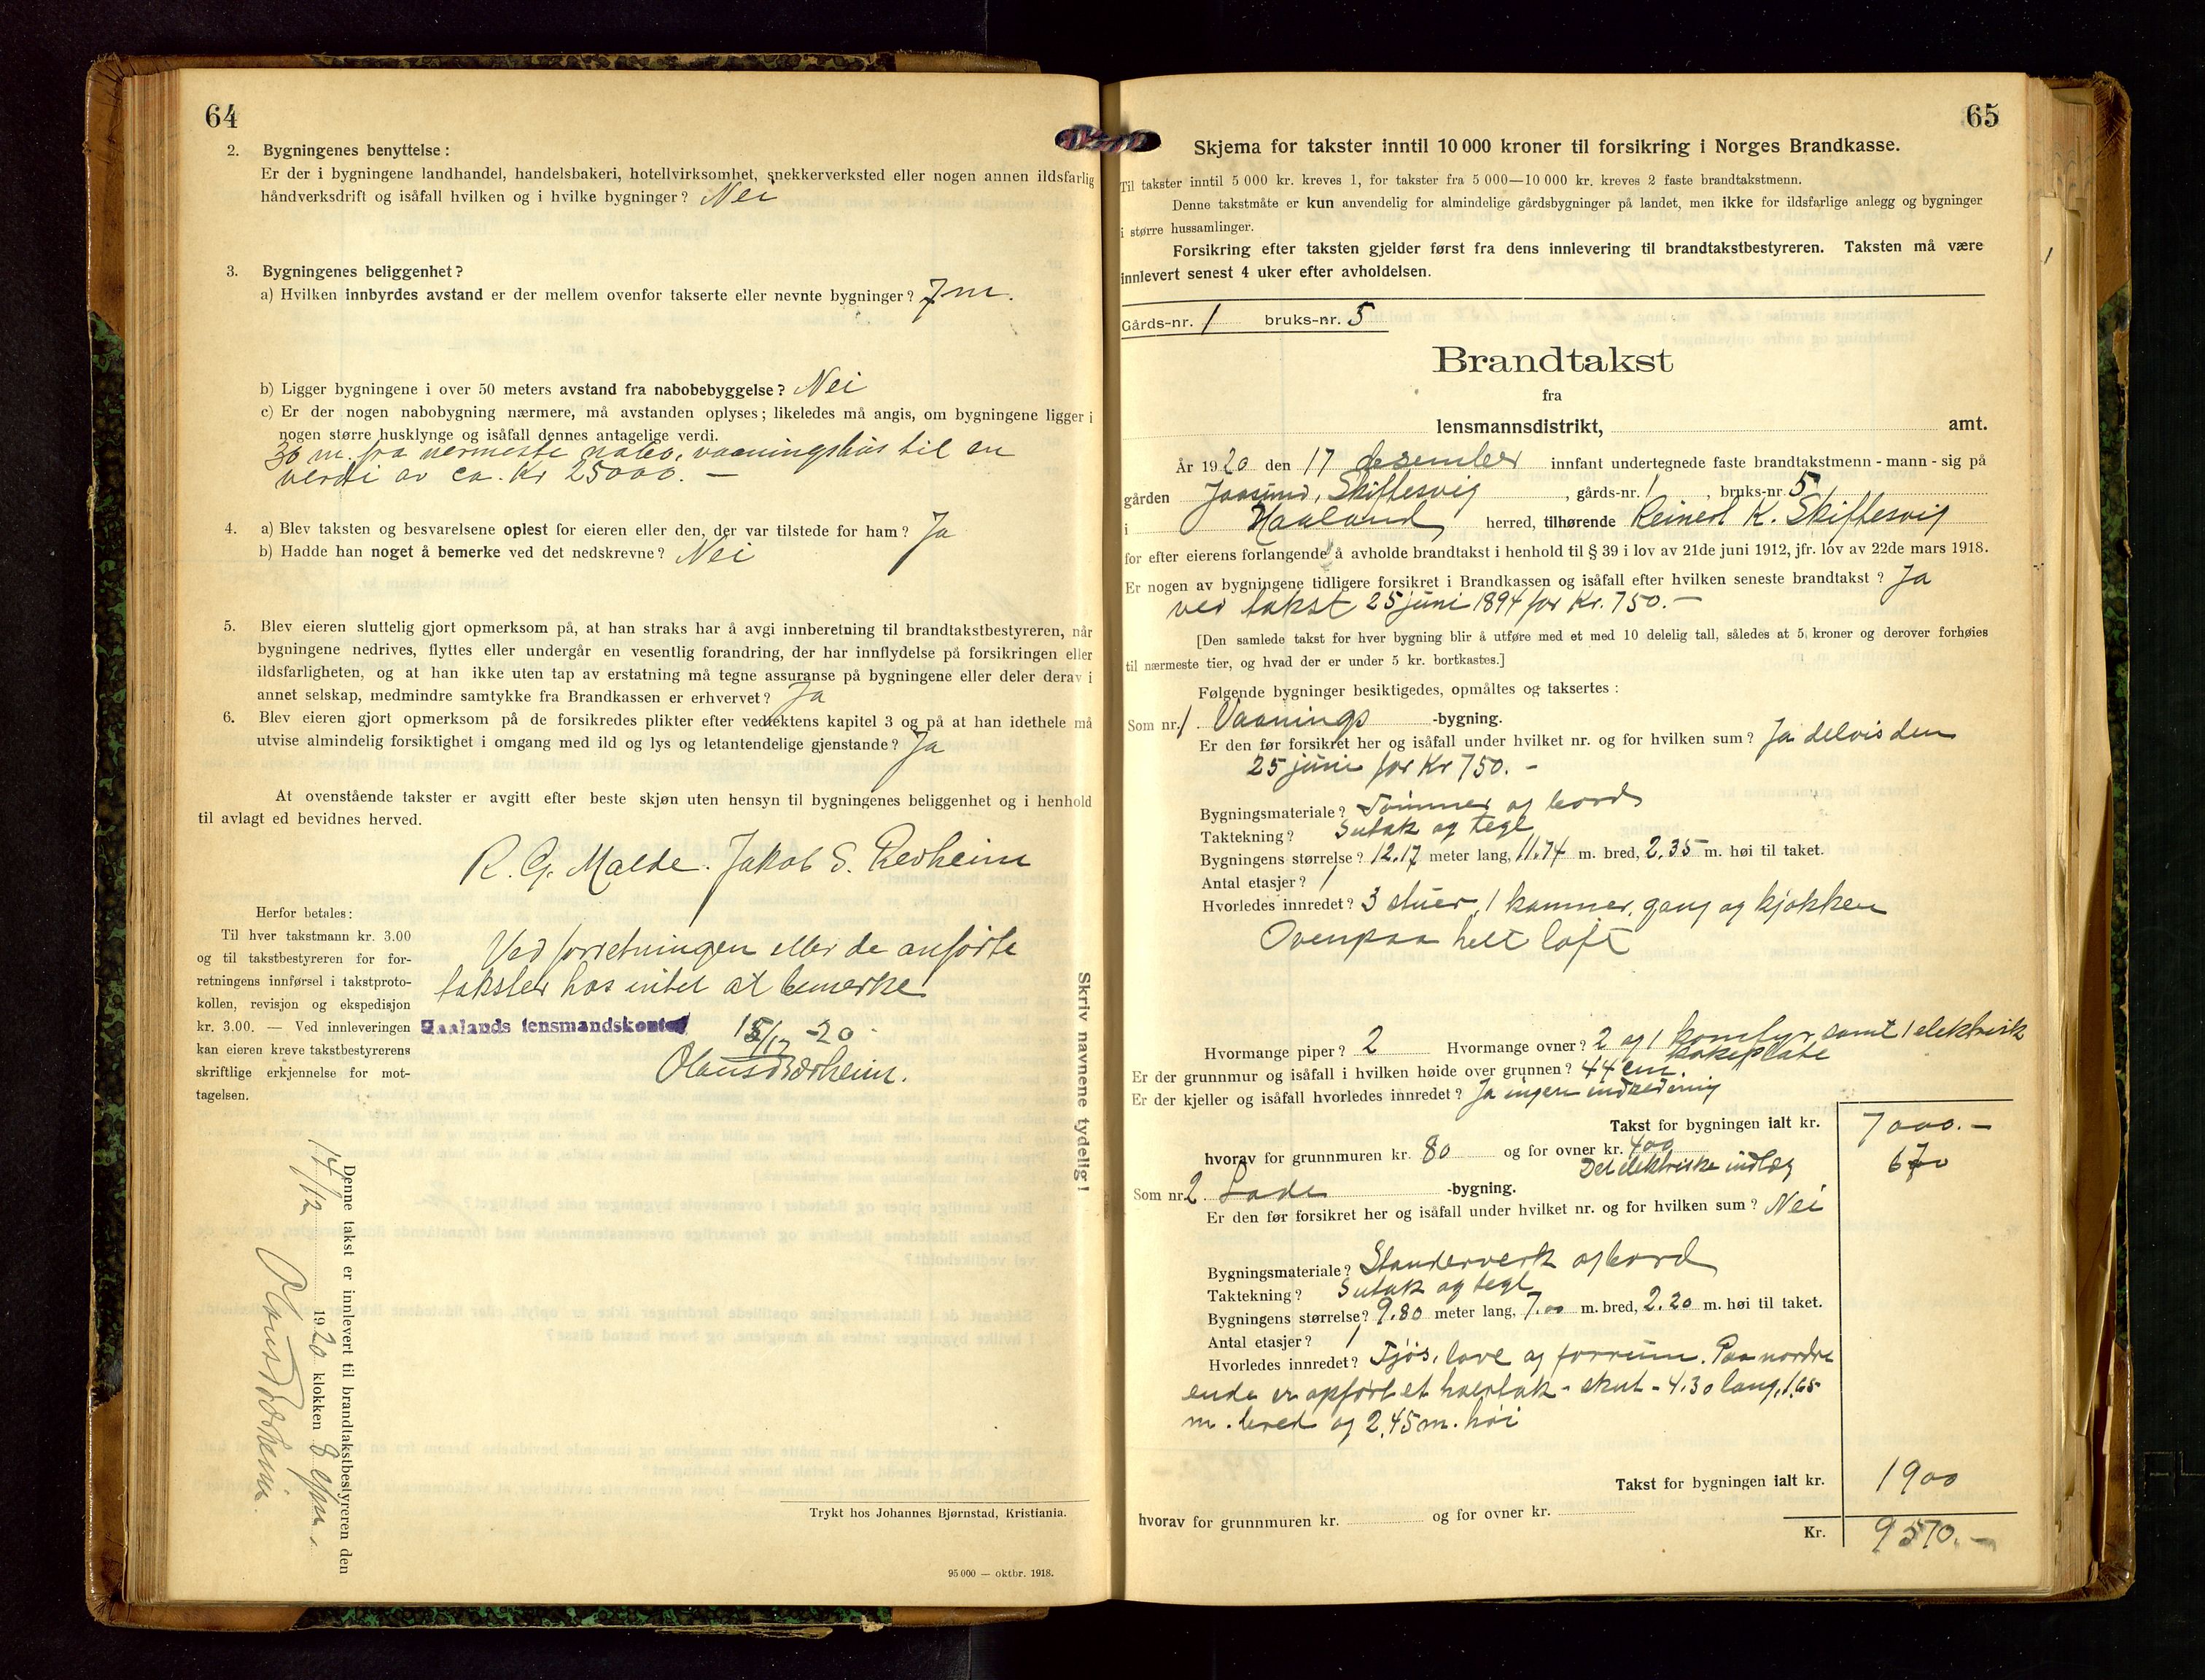 64
2. Bygningenes benyttelse:
Er der i bygningene landhandel, handelsbakeri, hotellvirksomhet, snekkerverksted eller nogen annen ildsfarlig
håndverksdrift og isåfall hvilken og i hvilke bygninger? Nei
3. Bygningenes beliggenhet?
a) Hvilken innbyrdes avstand er der mellem ovenfor takserte eller nevnte bygninger? 7 m.
b) Ligger bygningene i over 50 meters avstand fra nabobebyggelse? Nei
c) Er der nogen nabobygning nærmere, må avstanden oplyses; likeledes må angis, om bygningene ligger i
nogen større husklynge og isåfall dennes antagelige verdi.
30 m. fra nermeste nabo, vaaningshus til en
verdi av ca. Kr 25000. –
4. a) Blev taksten og besvarelsene oplest for eieren eller den, der var tilstede for ham? Ja
b) Hadde han noget å bemerke ved det nedskrevne? Nei
5. Blev eieren sluttelig gjort opmerksom på, at han straks har å avgi innberetning til brandtakstbestyreren, når
bygningene nedrives, flyttes eller undergår en vesentlig forandring, der har innflydelse på forsikringen eller
ildsfarligheten, og at han ikke uten tap av erstatning må tegne assuranse på bygningene eller deler derav i
annet selskap, medmindre samtykke fra Brandkassen er erhvervet? Ja
6. Blev eieren gjort opmerksom på de forsikredes plikter efter vedtektens kapitel 3 og på at han idethele må
utvise almindelig forsiktighet i omgang med ild og lys og letantendelige gjenstande? Ja
At ovenstående takster er avgitt efter beste skjøn uten hensyn til bygningenes beliggenhet og i henhold
til avlagt ed bevidnes herved.
R. G. Malde. Jakob S. Revheim
Herfor betales:
Til hver takstmann kr. 3.00
og til takstbestyreren for for-
retningens innførsel i takstproto-
kollen, revisjon og ekspedisjon
kr. 3.00. — Ved innleveringen
kan eieren kreve takstbestyrerens
skriftlige erkjennelse for mot-
tagelsen.
Ved forretningen eller de anførte
takster has intet at bemerke
Haalands lensmandskontor 15/12 -20
Olaus Bærheim.
Skriv navnene tydelig!
Denne takst er innlevert til brandtakstbestyreren den
14/12 1920 klokken 8
Olaus Bærheim.
Trykt hos Johannes Bjørnstad, Kristiania.
95 000 — oktbr. 1918.
65
Skjema for takster inntil 10 000 kroner til forsikring i Norges Brandkasse.
Til takster inntil 5 000 kr. kreves 1, for takster fra 5 000—10 000 kr. kreves 2 faste brandtakstmenn.
Denne takstmåte er kun anvendelig for almindelige gårdsbygninger på landet, men ikke for ildsfarlige anlegg og bygninger
i større hussamlinger.
Forsikring efter taksten gjelder først fra dens innlevering til brandtakstbestyreren. Taksten må være
innlevert senest 4 uker efter avholdelsen.
Gårds-nr. 1 bruks-nr. 5
Brandtakst
fra
lensmannsdistrikt, amt.
År 1920 den 17 desember innfant undertegnede faste brandtakstmenn - mann - sig på
gården Jaasund, Skiftesvig, gårds-nr. 1, bruks-nr. 5
i Haaland herred, tilhørende Reinert K. Skiftesvig
for efter eierens forlangende å avholde brandtakst i henhold til § 39 i lov av 21de juni 1912, jfr. lov av 22de mars 1918.
Er nogen av bygningene tidligere forsikret i Brandkassen og isåfall efter hvilken seneste brandtakst? Ja
ved takst 25 juni 1894 for Kr. 750. –
[Den samlede takst for hver bygning blir å utføre med et med 10 delelig tall, således at 5 kroner og derover forhøies
til nærmeste tier, og hvad der er under 5 kr. bortkastes.]
Følgende bygninger besiktigedes, opmåltes og taksertes:
Som nr. 1 Vaanings -bygning.
Er den før forsikret her og isåfall under hvilket nr. og for hvilken sum? Ja delvis den
25 juni for Kr 750. –
Bygningsmateriale? Tømmer og bord
Taktekning? Sutak og tegl
Bygningens størrelse? 12.17 meter lang, 11.74 m. bred, 2.35 m. høi til taket.
Antal etasjer? 1
Hvorledes innredet? 3 stuer, 1 kammer, gang og kjøkken
Ovenpaa helt loft
Hvormange piper? 2 Hvormange ovner? 2 og 1 komfyr samt 1 elektrisk
kokeplate
Er der grunnmur og isåfall i hvilken høide over grunnen? 44 cm.
Er der kjeller og isåfall hvorledes innredet? Ja ingen indredning
Takst for bygningen ialt kr. 7000. –
hvorav for grunnmuren kr. 80 og for ovner kr. 400
Det elektriske indlæg 670
Som nr. 2 Lade -bygning.
Er den før forsikret her og isåfall under hvilket nr. og for hvilken sum? Nei
Bygningsmateriale? Standerverk og bord
Taktekning? Sutak og tegl
Bygningens størrelse? 9.80 meter lang, 7.00 m. bred, 2.20 m. høi til taket.
Antal etasjer? 1
Hvorledes innredet? Fjøs, love og forrum. Paa nordre
ende er opført et halvtak - skut - 4.30 lang, 1.65
m. bred og 2,45 m. høi
Takst for bygningen ialt kr. 1900
hvorav for grunnmuren kr. og for ovner kr.
Kr. 9570. –